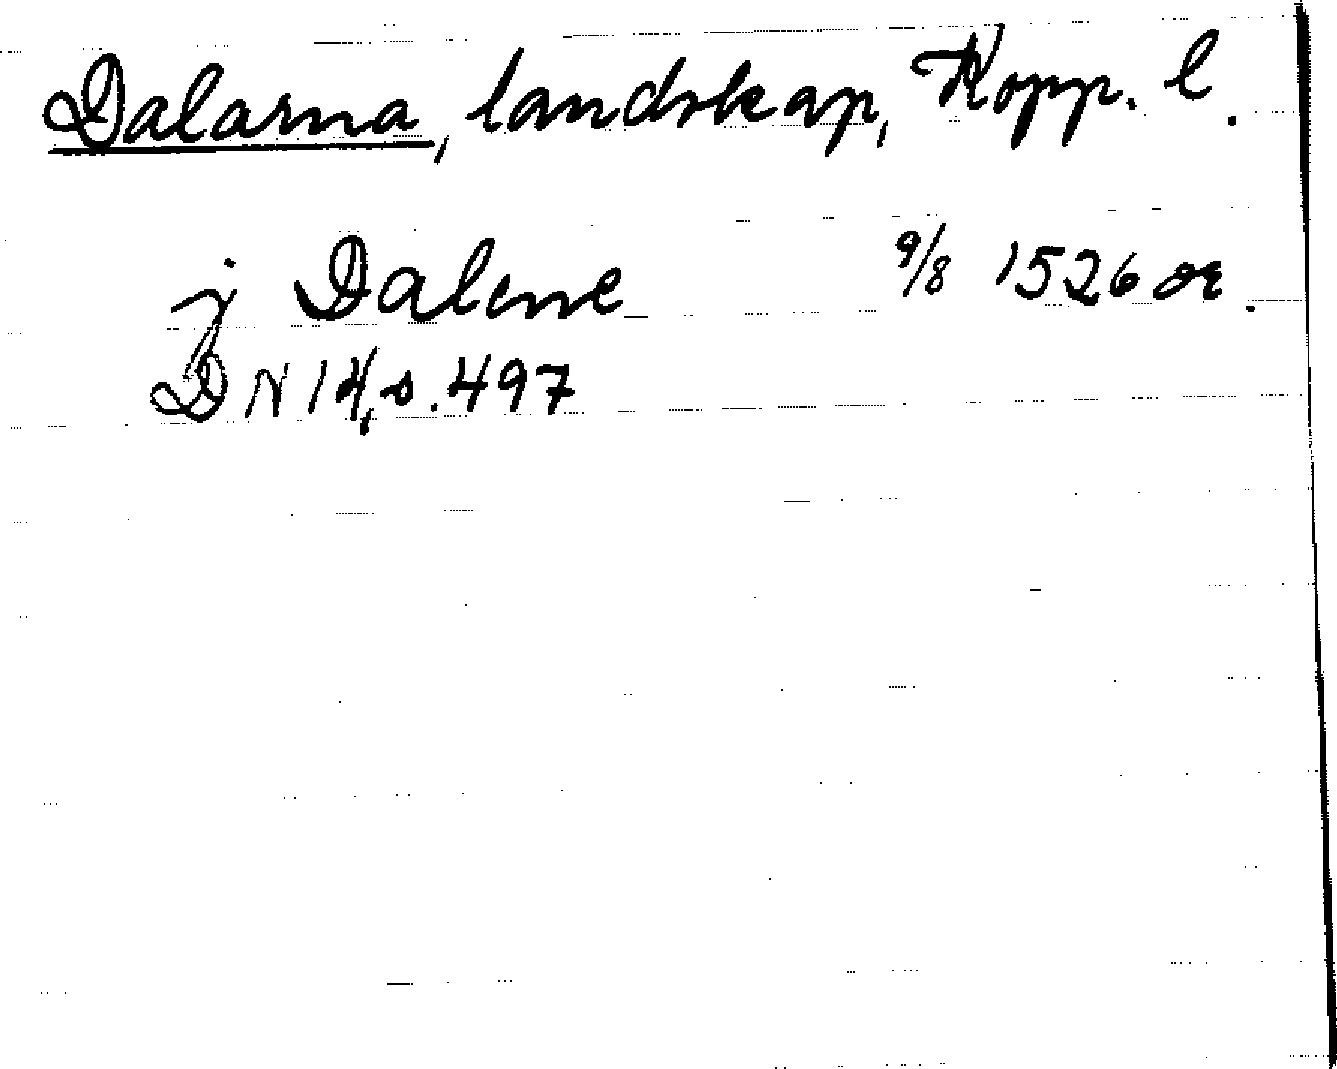 Dalarna, landskap, Kopp. l.
j Dalene 9/8 1526 or.
DN 14, s. 497